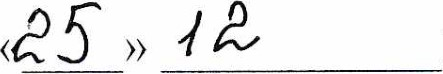 «25» 12